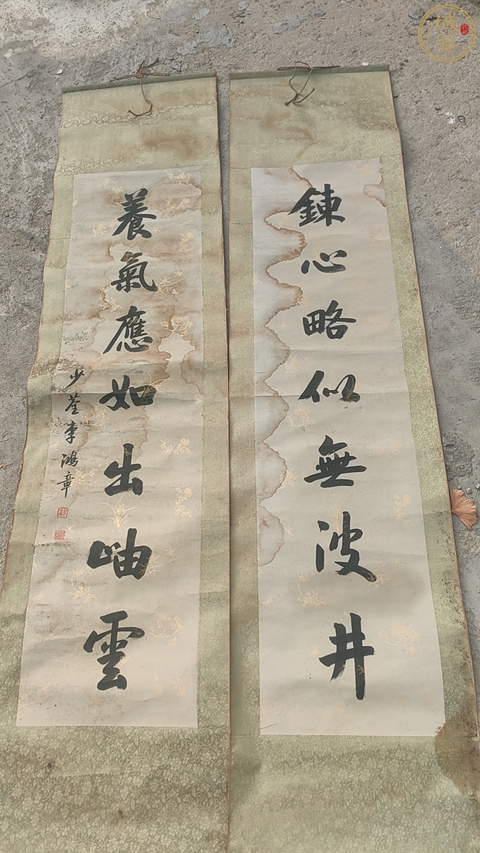 鍊心略似無波井
養氣應如出岫雲
少荃李鴻章